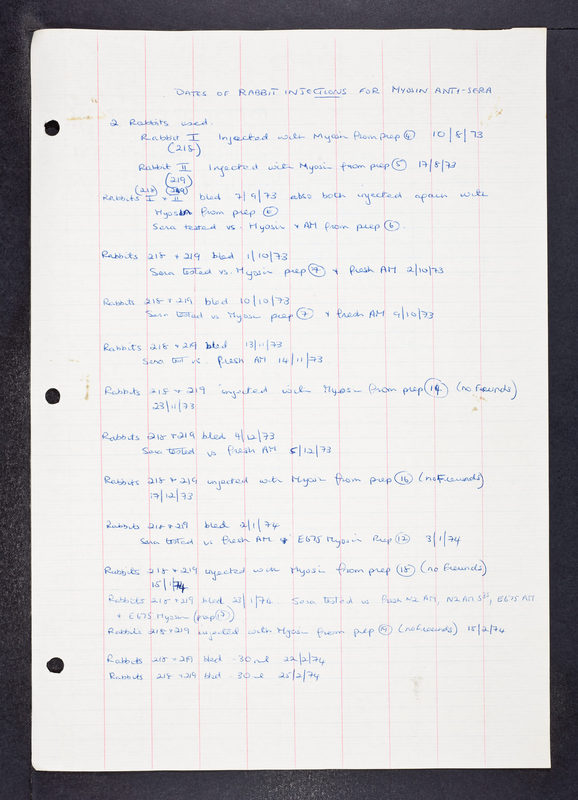 DATES OF RABBIT INJECTIONS FOR MYOSIN ANTI-SERA
2 Rabbits used.
Rabbit I Injected with Myosin from prep 4 10/8/73
(218)
Rabbit II Injected with Myosin from prep 5 17/8/73
(219)
(218) (219)
Rabbits I + II bled 7/9/73 also both injected again with
Myosin from prep 6
Sera tested vs. Myosin + AM from prep 6.
Rabbits 218 + 219 bled 1/10/73
Sera tested vs. Myosin prep 7 + fresh AM 2/10/73
Rabbits 218 + 219 bled 10/10/73
Sera tested vs Myosin prep 7 + fresh AM 9/10/73
Rabbits 218 + 219 bled 13/11/73
Sera test vs. fresh AM 14/11/73
Rabbits 218 + 219 injected with Myosin from prep 14 (no Freunds)
23/11/73
Rabbits 218 + 219 bled 4/12/73
Sera tested vs fresh AM 5/12/73
Rabbits 218 + 219 injected with Myosin from prep 16 (no Freunds)
17/12/73
Rabbits 218 + 219 bled 2/1/74
Sera tested vs fresh AM + E675 Myosin Prep 17 3/1/74
Rabbits 218 + 219 injected with Myosin from prep 18 (no Freunds)
15/1/74
Rabbits 218 + 219 bled 23/1/74. Sera tested vs fresh N2 AM, N2 AM, E675 AM
+ E675 Myosin (prep 17)
Rabbits 218 + 219 injected with Myosin from prep 19 (no Freunds) 15/2/74
Rabbits 218 + 219 bled 30ml 22/2/74
Rabbits 218 + 219 bled 30ml 25/2/74